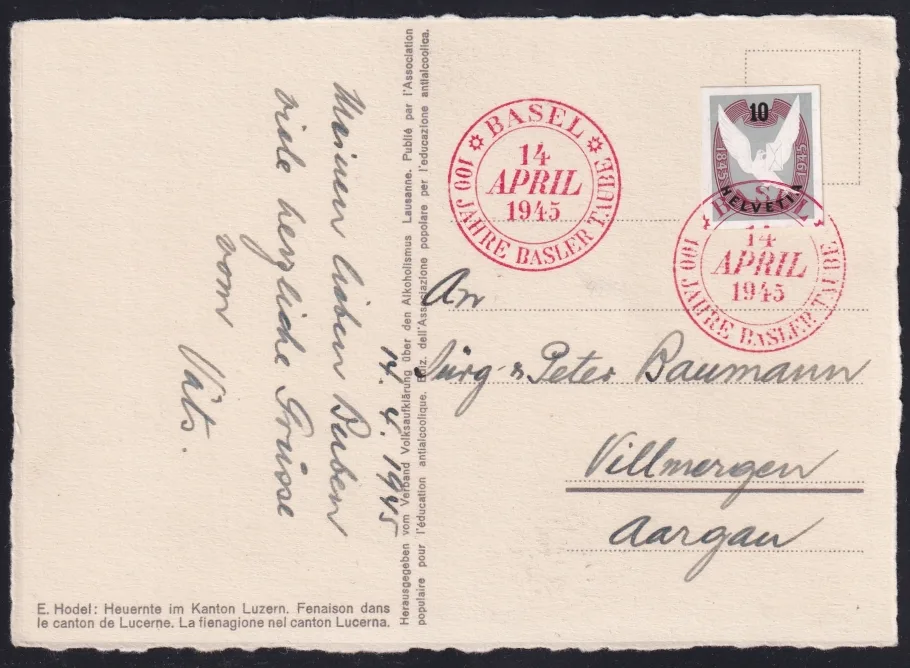 Meinen lieben Buben
viele herzliche Grüsse
vom
Vati.
14. 4. 1945
Herausgegeben vom Verband Volksaufklärung über den Alkoholismus Lausanne. Publié par l'Association
populaire pour l'éducation antialcoolique. Ediz. dell'Associazione popolare per l'educazione antialcoolica.
E. Hodel: Heuernte im Kanton Luzern. Fenaison dans
le canton de Lucerne. La fienagione nel canton Lucerna.
BASEL
14
APRIL
1945
100 JAHRE BASLER TAUBE
10
1845 1945
HELVETIA
BASEL
14
APRIL
1945
100 JAHRE BASLER TAUBE
An
Jürg & Peter Baumann
Villmergen
Aargau